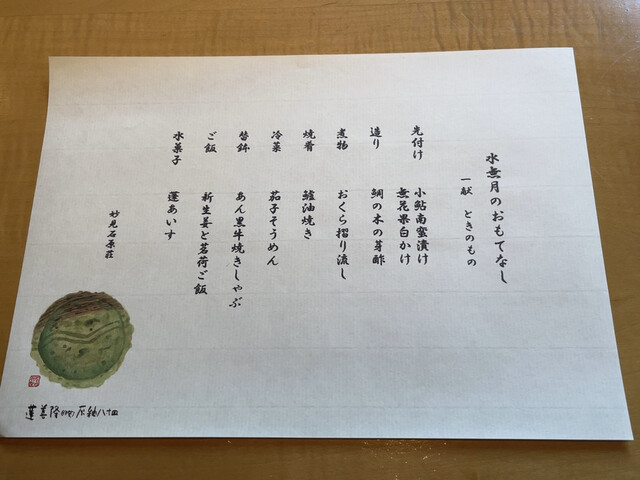 水無月のおもてなし
一献 ときのもの
先付け 小鮎南蛮漬け
無花果白かけ
造り 鯛の木の芽酢
煮物 おくら摺り流し
焼肴 鱧油焼き
冷菜 茄子そうめん
替鉢 あん黒牛焼きしゃぶ
ご飯 新生姜と茗荷ご飯
水菓子 蓮あいす
妙見石原荘